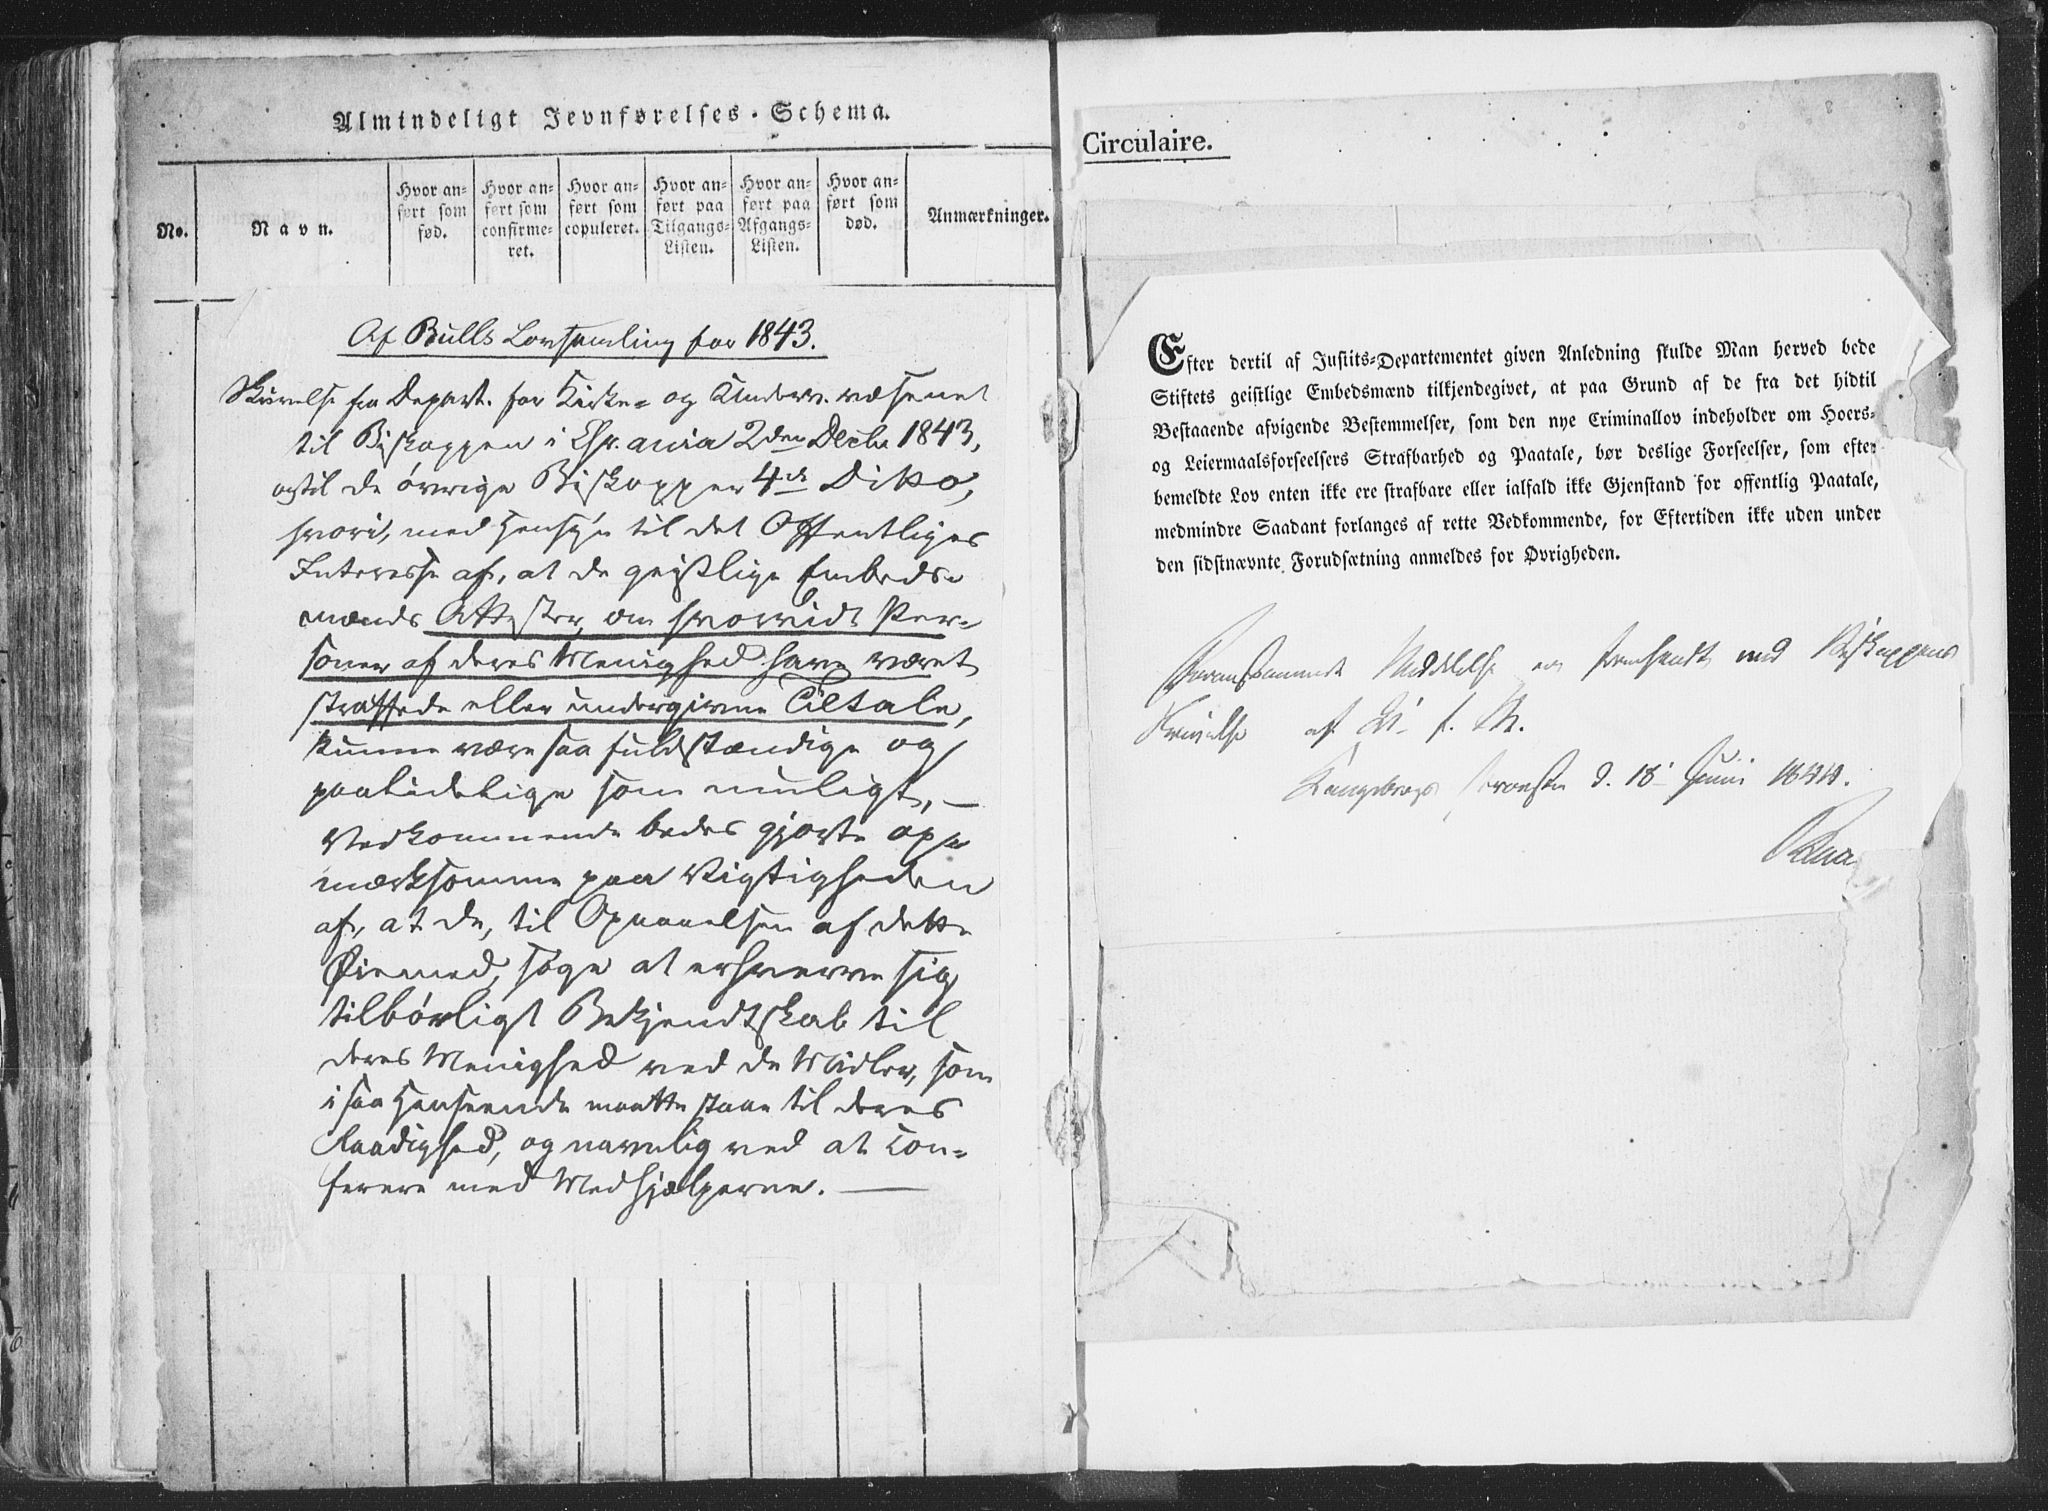 Almindeligt Jevnførelses-Schema.
No.
Navn.
Hvor an-
ført som
fød.
Hvor an-
ført som
confirme-
ret.
Hvor an-
ført som
copuleret.
Hvor an-
ført paa
Tilgangs-
Listen.
Hvor an-
ført paa
Afgangs-
Listen.
Hvor an-
ført som
død.
Anmærkninger.
Af Bulls Lovsamling for 1843.
Skrivelse fra Depart. for Kirke- og Underv. væsenet
til Biskoppen i Chr.ania 2den Decbr 1843,
og til de øvrige Biskopper 4de Ditto,
hvori, med Hensyn til det Offentliges
Interesse af, at de geistlige Embeds-
mænds Attester, om hvorvidt Per-
soner af deres Menighed have været
straffede eller undergivne Tiltale,
kunne være saa fuldstændige og
paalidelige som muligt, —
Vedkommende bedes gjorte op-
mærksomme paa Vigtigheden
af, at de, til Opnaaelsen af dette
Øiemed, søge at erhverve sig
tilbørligt Bekjendtskab til
deres Menighed ved de Midler, som
i saa Henseende maatte staae til deres
Raadighed, og navnlig ved at con-
ferere med Medhjælperne. —
Circulaire.
Efter dertil af Justits-Departementet given Anledning skulde Man herved bede
Stiftets geistlige Embedsmænd tilkjendegivet, at paa Grund af de fra det hidtil
Bestaaende afvigende Bestemmelser, som den nye Criminallov indeholder om Hoers-
og Leiermaalsforseelsers Strafbarhed og Paatale, bør deslige Forseelser, som efter
bemeldte Lov enten ikke ere strafbare eller ialfald ikke Gjenstand for offentlig Paatale,
medmindre Saadant forlanges af rette Vedkommende, for Eftertiden ikke uden under
den sidstnævnte Forudsætning anmeldes for Øvrigheden.
Meddelelse er fremsendt med Biskoppens
Skrivelse af f. M.
Kongsbergs Provstie d. 18 Juni 1844.